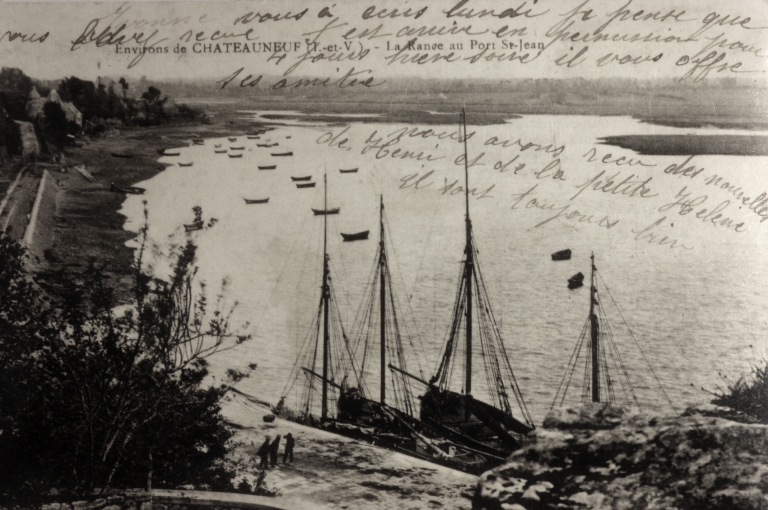 Yvonne vous a écris lundi je pense que
vous l'avez recue. est arrivé en permission pour
4 jours hiere soire il vous offre
ses amitié
Environs de CHATEAUNEUF (I.-et-V.) - La Rance au Port St-Jean
nous avons recu des nouvelles
de Henri et de la petite Helene
Il sont toujours bien